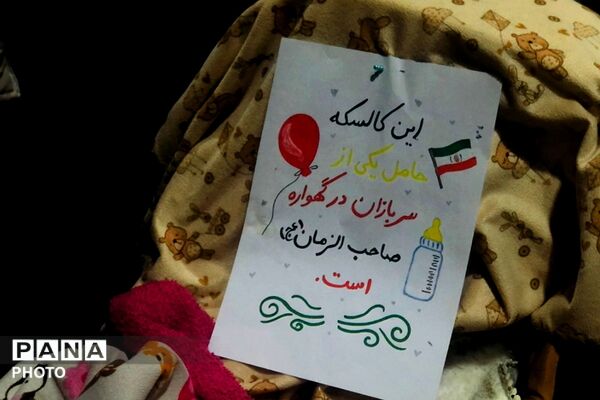 این کالسکه
حامل یکی از
سربازان در گهواره
صاحب الزمان (عج)
است.
PANA
PHOTO